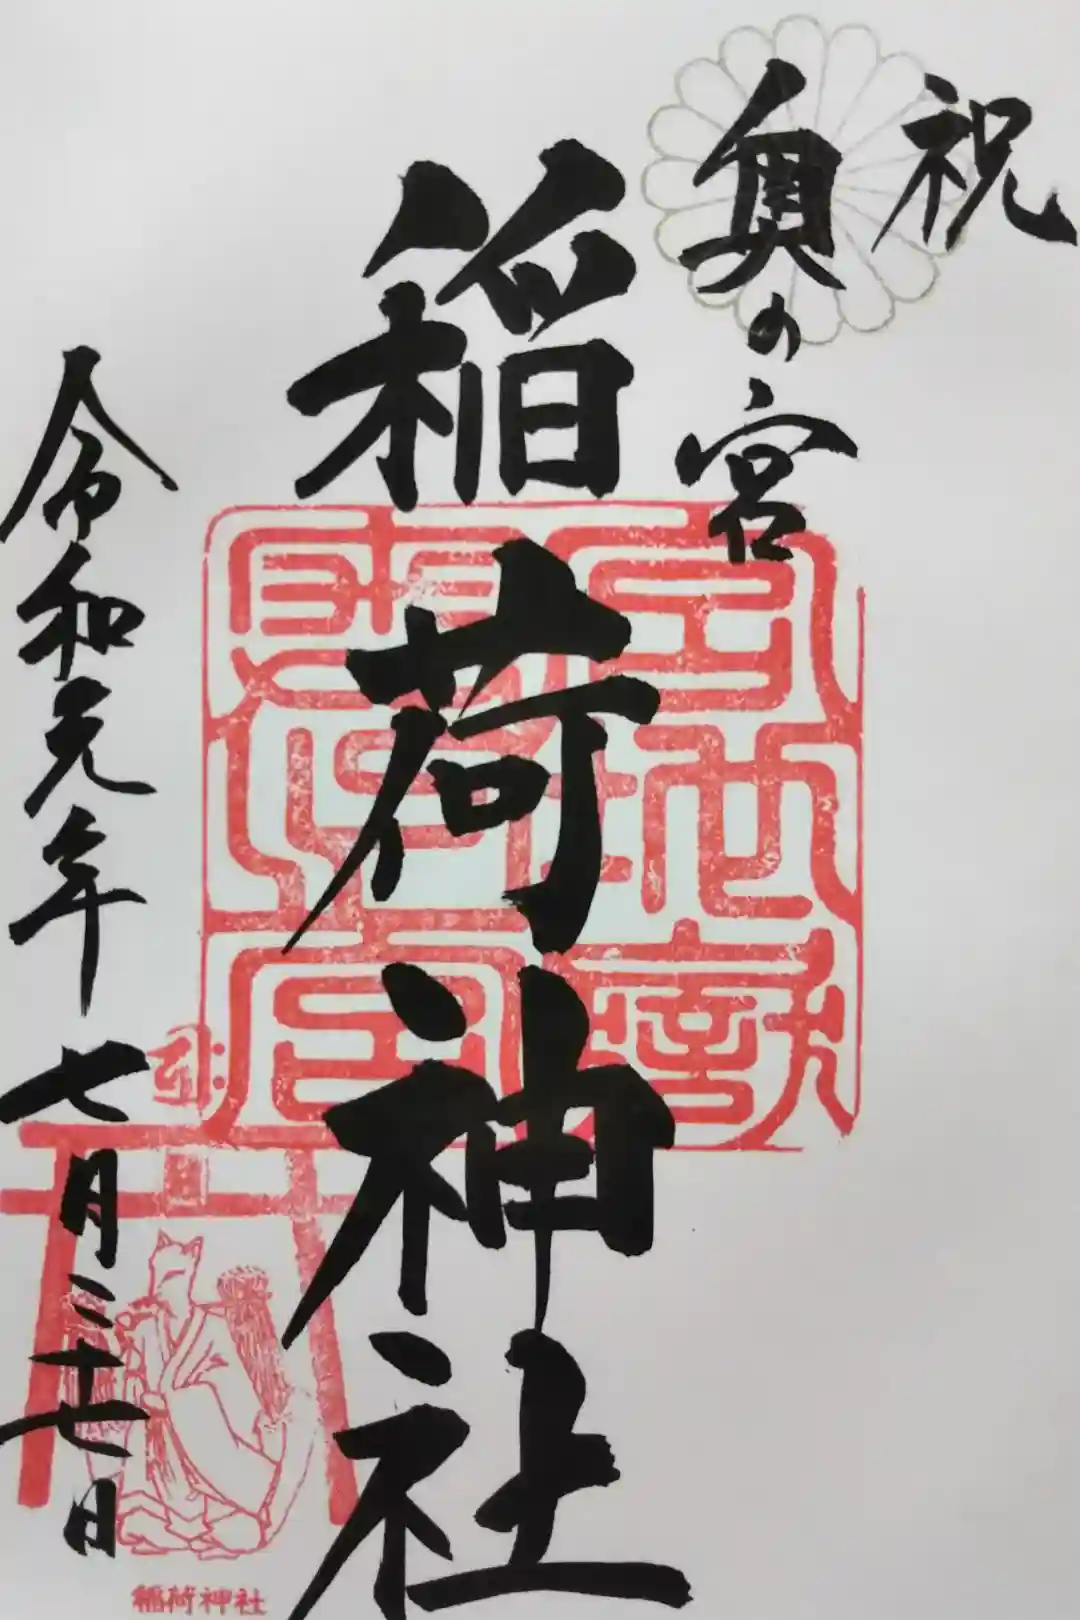 祝
奥の宮
稲荷神社
令和元年七月二十七日
稲荷神社